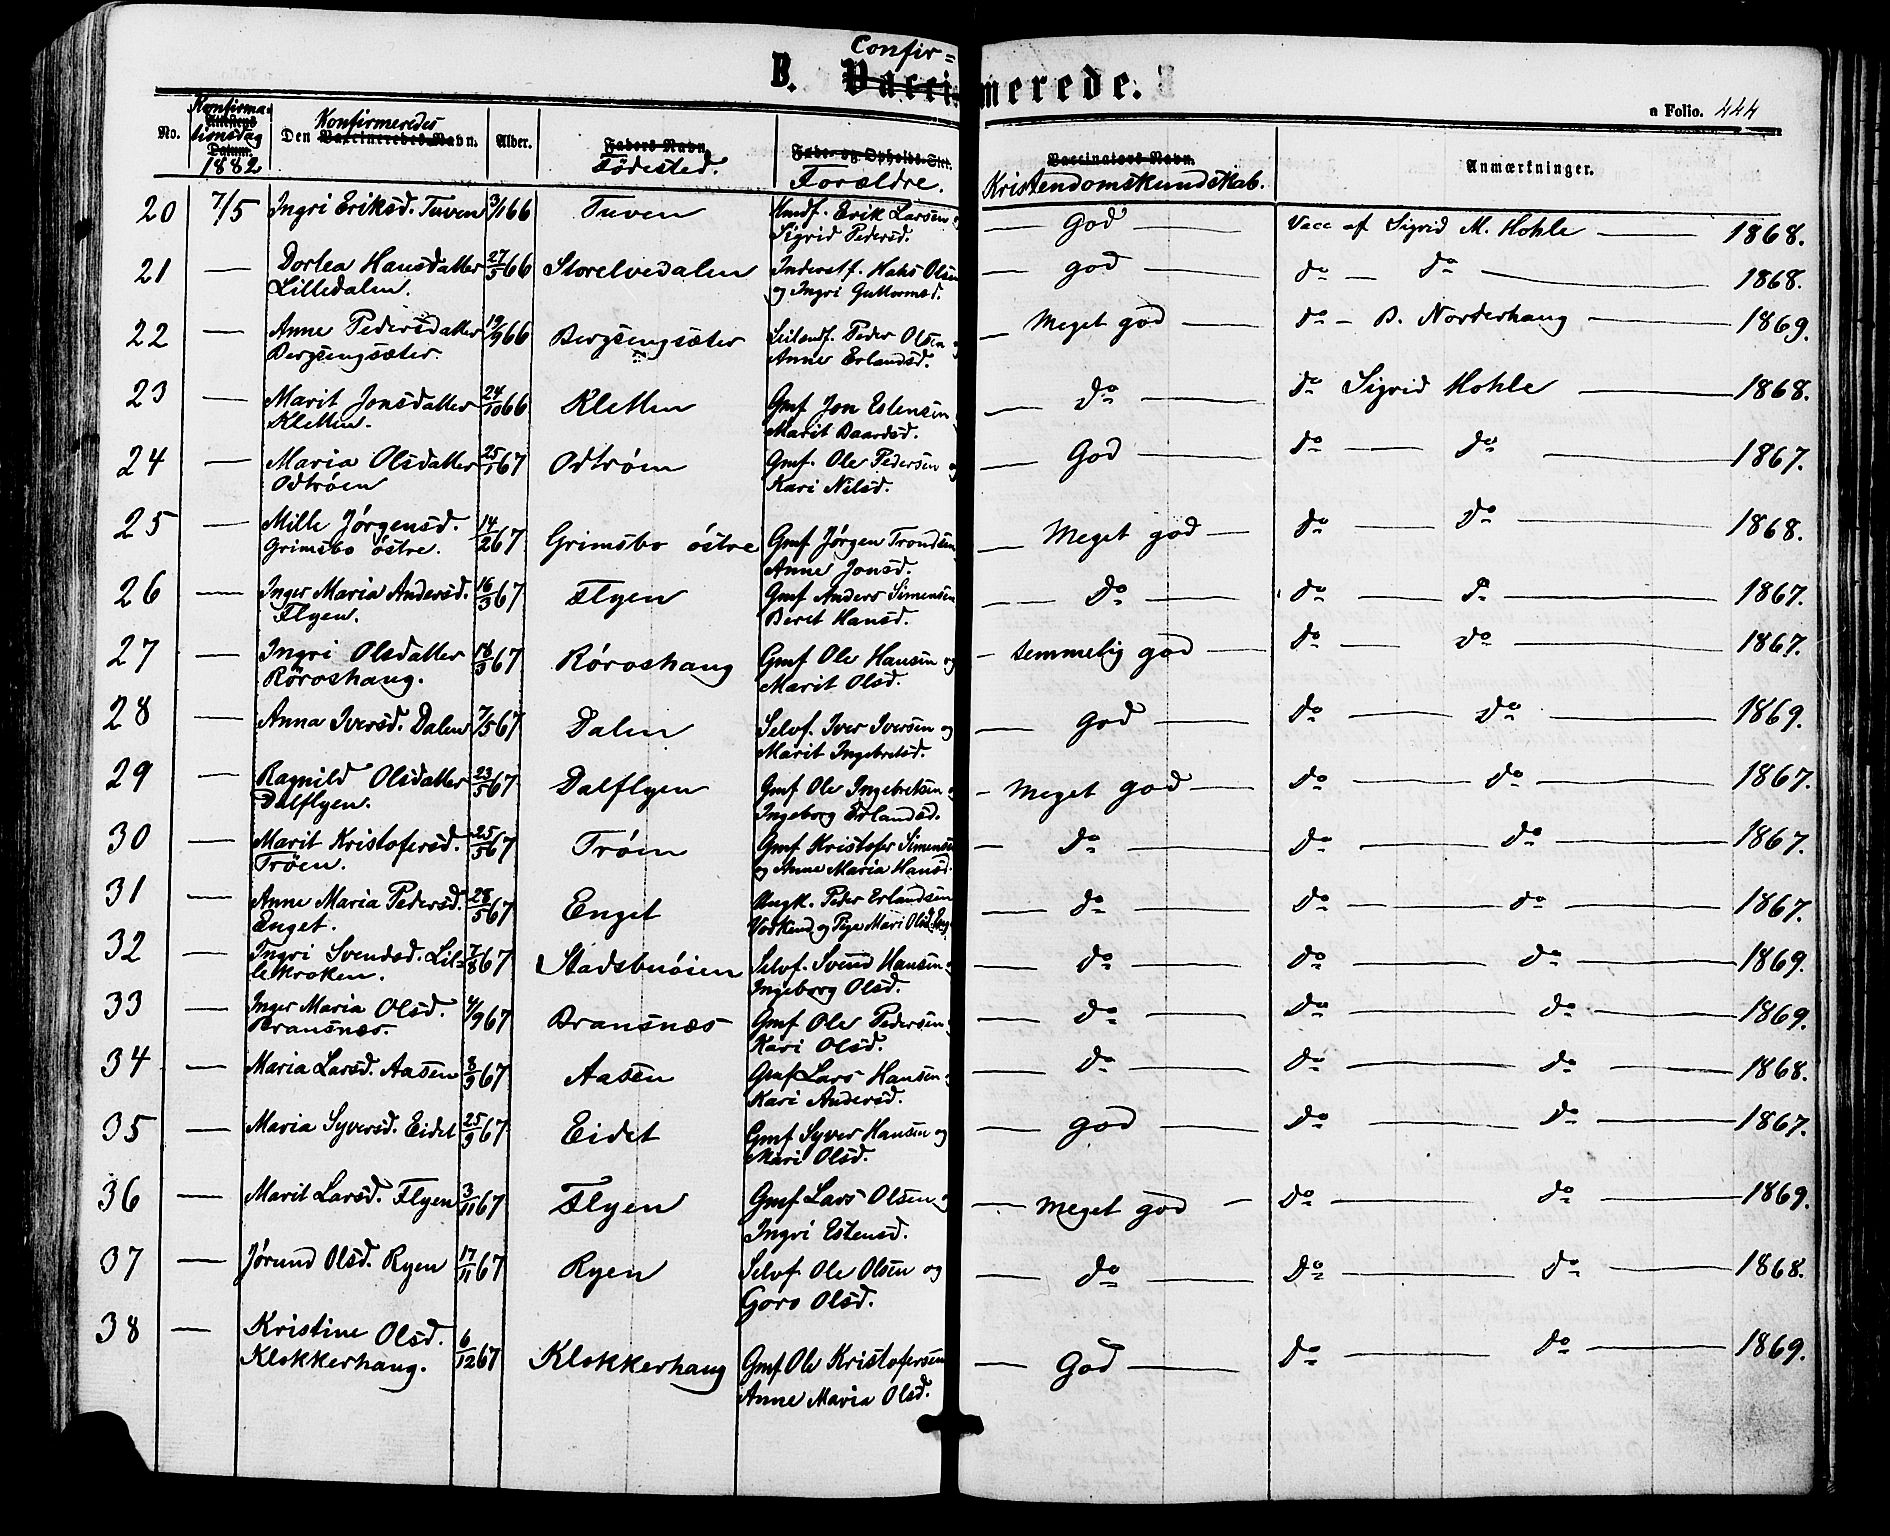 Confir=
B. Vacci merede.
a Folio. 444
No. Konfirma= Attestens tionsdag Datum. 1882 Den Konfirmeredes Vaccineredes Navn. Alder. Faders Navn. Fødested. Føde- og Opholds-Sted. Forældre. Vaccinators Navn. Kristendomskundskab. Anmærkninger.
20 7/5 Ingri Eriksd. Tuven 3/1 66 Tuven Hmdf. Erik Larsen og — God — Vacc af Sigrid M. Hohle — 1868.
Sigrid Pedersd.
21 — Dorlea Hansdatter 27/5 66 Storelvedalen Inderstf. Hans Olsen — god — do — do — 1868.
Lilledalen. og Ingri Guttormsd.
22 — Anne Pedersdatter 19/9 66 Bergsengsæter Leilændf. Peder Olsen og — Meget god — do — B. Norderhaug — 1869.
Bergsengsæter. Anne Erlandsd.
23 — Marit Jonsdatter 24/10 66 Kletten Gmf Jon Estensen — do — do Sigrid Hohle — 1868.
Kletten. Marit Baardsd.
24 — Maria Olsdatter 25/1 67 Odtrøen Gmf. Ole Pedersen og — God — do — do — 1867.
Odtrøen Kari Nilsd.
25 — Mille Jørgensd. 14/2 67 Grimsbo østre Gmf Jørgen Trondsen — Meget god — do — do — 1868.
Grimsbo østre. Anne Jonsd.
26 — Inger Maria Andersd. 16/3 67 Flyen Gmf Anders Simensen — do — do — do — 1867.
Flyen. Beret Hansd.
27 — Ingri Olsdatter 18/3 67 Røroshaug Gmf Ole Hansen og — temmelig god — do — do — 1867.
Røroshaug. Marit Olsd.
28 — Anna Iversd. Dalen 7/5 67 Dalen Selvf. Iver Iversen og — God — do — do — 1869.
Marit Ingebretsd.
29 — Ragnild Olsdatter 23/5 67 Dalflyen Gmf Ole Ingebretsen og — Meget god — do — do — 1867.
Dalflyen. Ingeborg Erlandsd.
30 — Marit Kristofersd. 25/5 67 Trøen Gmf Kristofer Simensen — do — do — do — 1867.
Trøen. og Anne Maria Hansd.
31 — Anne Maria Pedersd. 28/5 67 Enget Ungk. Peder Erlandsen — do — do — do — 1867.
Enget. og Pige Mari Olsd.
32 — Ingri Svendsd. Lil= 7/8 67 Stadsbuøien Selvf. Svend Hansen og — do — do — do — 1869.
lekroken. Ingeborg Olsd.
33 — Inger Maria Olsd. 4/9 67 Bransnæs Gmf Ole Pedersen — do — do — do — 1869.
Bransnæs. Kari Olsd.
34 — Maria Larsd. Aasen 8/9 67 Aasen Gmf Lars Hansen og — do — do — do — 1868.
Kari Andersd.
35 — Maria Syversd. Eidet 25/9 67 Eidet Gmf Syver Hansen og — god — do — do — 1867.
Mari Olsd.
36 — Marit Larsd. Flyen 3/11 67 Flyen Gmf Lars Olsen og — Meget god — do — do — 1869.
Ingri Estensd.
37 — Jørund Olsd. Ryen 17/11 67 Ryen Selvf Ole Olsen og — do — do — do — 1868.
Goro Olsd.
38 — Kristine Olsd. 6/12 67 Klokkerhaug Gmf Ole Kristofersen — God — do — do — 1869.
Klokkerhaug. Anne Maria Olsd.